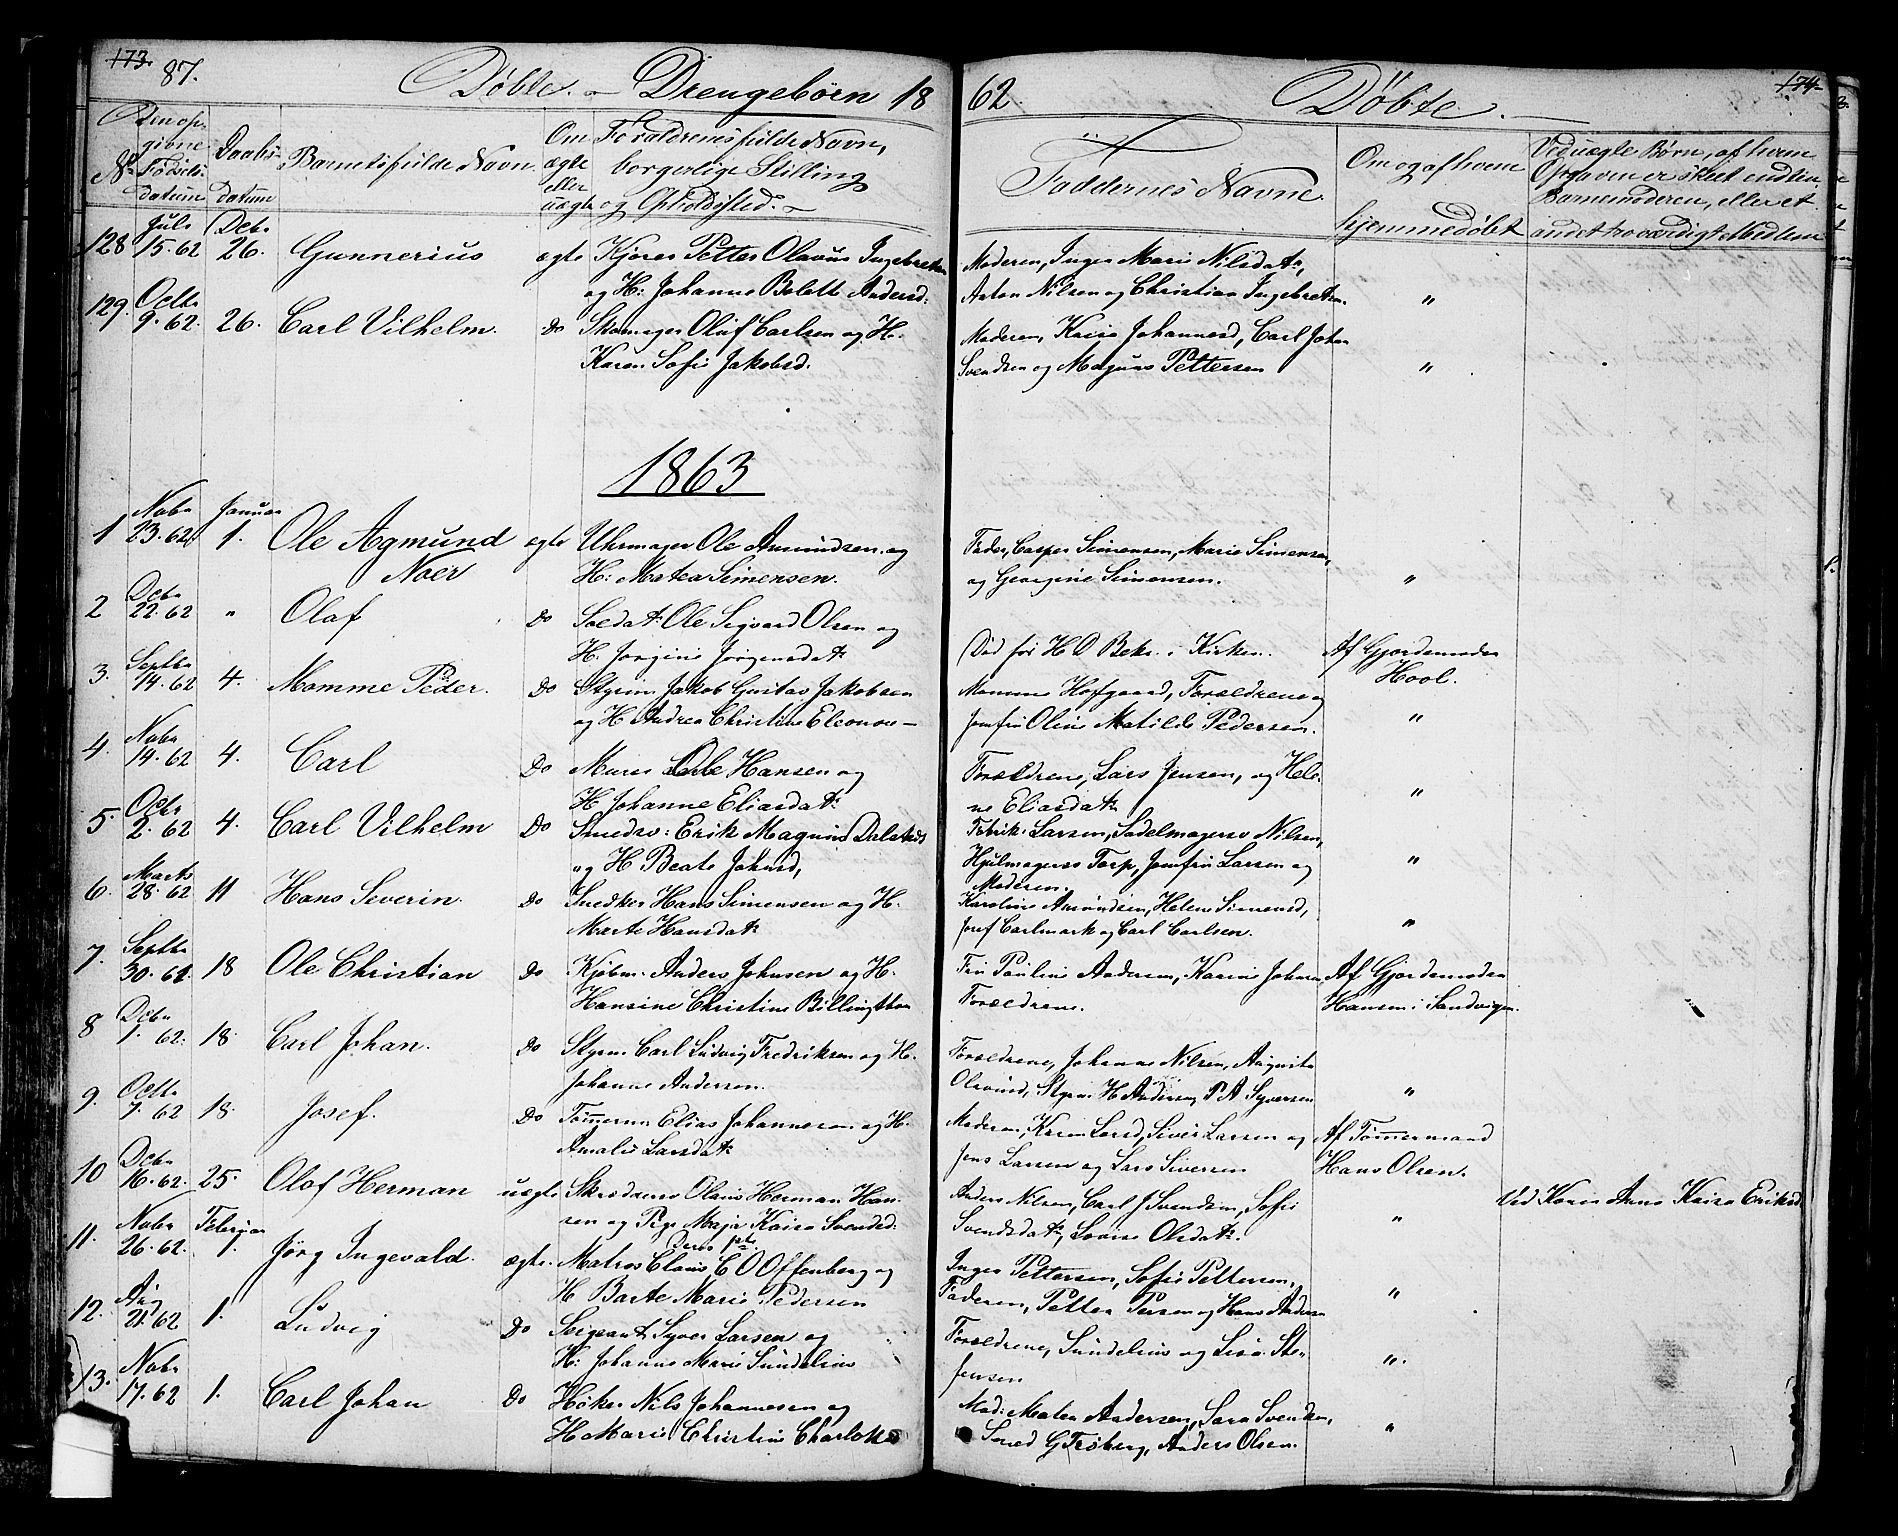 173. 87. Döbte. Drengebörn 18
62 Döbte. 174
No Den opgivne Födselsdatum
Daabsdatum
Barnets fulde Navn.
Om ægte eller uægte
Forældrenes fulde Navn, borgerlige Stilling og Opholdsted.
Faddernes Navne.
Om og af hvem hjemmedöbt
Ved uægte Börn, af hvem Opgaven er skeet enten Barnemoderen, eller et andet troværdigt Medlem
128 Juli 15. 62 Decbr 26. Gunnerius ægte Kjörer Petter Olavus Ingebretsen
og H: Johanne Bolette Andersd:
Moderen, Inger Marie Nilsdatr,
Anton Nilsen og Christian Ingebretsen. "
129. Octbr 9. 62. 26. Carl Vilhelm. Do Skomager Olaf Carlsen og H.
Karen Sofie Jakobsd.
Moderen, Kaisa Johannesd, Carl Johan
Svendsen og Magnus Pettersen "
1863
1 Novbr 23. 62 Januar 1. Ole Agmund ægte Uhrmager Ole Amundsen og
Noer H: Matea Simensen.
Fader, Casper Simensen, Marie Simensen,
og Georgine Simensen. "
2 Decbr 22. 62 " Olaf Do Soldat Ole Sigvard Olsen og
H. Jorgine Jörgensdatr
Död för H D Bekr. i Kirken. Af Gjordemoder
Hool.
3. Septbr 14. 62 4. Momme Peder. Do Styrm. Jakob Gustav Jakobsen
og H Andrea Christine Eleonore
Momme Hofgaard, Forældrene og
Jomfru Oline Matilde Pedersen. "
4. Novbr 14. 62 4. Carl Do Murer Ole Hansen og
H Johanne Eliasdatr
Forældrene, Lars Jensen, og Hele-
ne Eliasdatr "
5. Octbr 2. 62 4. Carl Vilhelm Do Smedsv: Erik Magnus
og H Beate Johnsd,
Fabrik: Larsen, Sadelmagersv Nilsen,
Hjulmagersv Torp, Jomfru Larsen og
Moderen. "
6. Marts 28. 62 11 Hans Severin. Do Snedker Hans Simensen og H.
Marte Hansdatr
Karoline Amundsen, Helene Simensd,
Josef Carlmark og Carl Carlsen. "
7. Septbr 30. 62 18 Ole Christian Do Kjöbm. Anders Johnsen og H.
Hansine Christine
Fru Pauline Andersen, Karine Johnsen
Forældrene. Af Gjordemoder
Hansen i Sandvigen.
8 Decbr 1. 62. 18. Carl Johan. Do Styrm. Carl Ludvig Fredriksen og H.
Johanne Andersen.
Forældrene, Johanne Nilsen, Augusta
Styrm. H Andersen, P A Syversen "
9. Octbr 7. 62 18. Josef. Do Tömmerm Elias Johannesen og H.
Amalie Larsdatr
Moderen, Karen Larsd, Siver Larsen og
Jens Larsen og Lars Siversen Af Tömmermand
Hans Olsen.
10 Decbr 16. 62. 25. Olaf Herman uægte Skrædersv Olaus Herman Han-
sen og Pige Maja Kaisa Svendsd:
Deres 1ste
Anders Nilsen, Carl J Svendsen, Sofie
Svendsdatr, Lovise Olsdatr. " Ved Konen Anne Kaisa Eriksd
11. Novbr 26. 62. Februar 1. Jörg Ingevald. ægte. Matros Claus C O Offenberg og
H Barte Marie Pedersen
Inger Pettersen, Sofie Pettersen,
Faderen, Petter Persen og Hans Andersen "
12. Aug 21. 62 1. Ludvig Do Sergeant Syver Larsen og
H: Johanne Marie Sundelius
Forældrene, Sundelius og Lisa Ste-
fensen ".
13. Novbr 17. 62 1. Carl Johan Do Höker Nils Johannesen og
H Marie Christine Charlotte
Mod: Malen Andersen, Sara Svendsen,
Smed G Fröberg, Anders Olsen. "